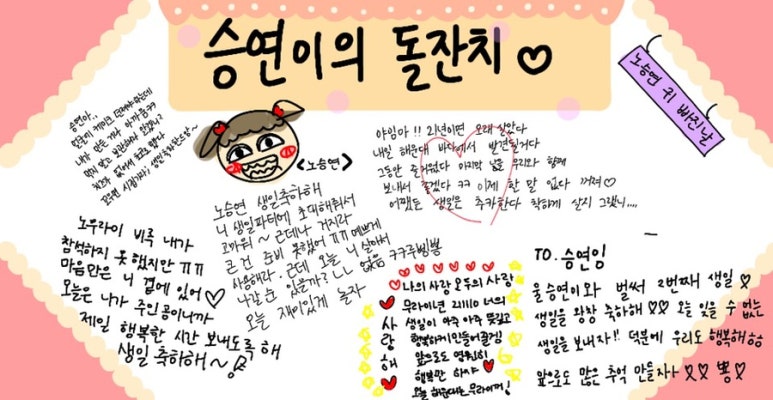 승연이의 돌잔치 ♡
노승연 귀 빠진 날
<노승연>
승연아..
야임마!! 21년이면 오래 살았다
내일 해운대 바다에서 발견될거다
그동안 즐거웠다 마지막 날을 우리와 함께
보내서 좋겠다 ㅋㅋ 이제 할 말 없다 꺼져♡
어쨌든 생일은 축하한다 착하게 살지 그랬니....
노우라이 비록 내가
참석하지 못했지만 ㅠㅠ
마음만은 니 곁에 있어♡
오늘은 니가 주인공이니까
제일 행복한 시간 보내도록 해
생일 축하해~
노승연 생일축하해
니 생일파티에 초대해줘서
고마워~ 근데 나 거지라
큰 건 준비 못했어 ㅠㅠ 예쁘게
사용해라. 근데 오늘 니 살아서
나갈 순 있을까? 없음 ㅋㅋ
오늘 재미있게 놀자
사랑해
나의 사랑 모두의 사랑
무라이년 211110 너의
생일이 아주 아주 뜻깊고
행복하게 만들어줄게
앞으로도 영원히
행복만 하자
오늘 해운대는 무라이꺼!
TO. 승연임
울 승연이와 벌써 2번째 생일♡
생일을 왕창 축하해 ♡♡ 오늘 잊을 수 없는
생일을 보내자!! 덕분에 우리도 행복해 ㅎㅎ
앞으로도 많은 추억 만들자 ♡♡ 뿅♡